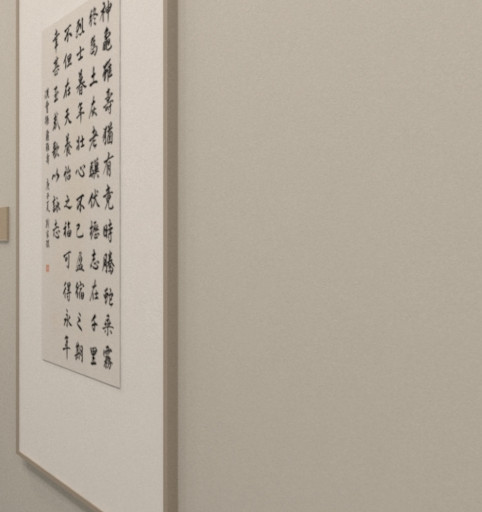 神龜雖壽猶有竟時騰蛇乘霧
終爲土灰老驥伏櫪志在千里
烈士暮年壯心不已盈縮之期
不但在天養怡之福可得永年
幸甚至哉歌以詠志
漢曹操龜雖壽